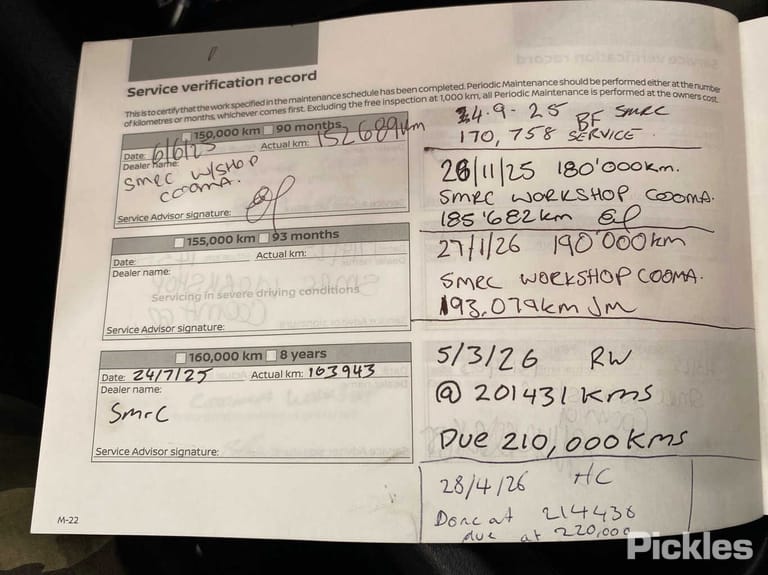 Service verification record
This is to certify that the work specified in the maintenance schedule has been completed. Periodic Maintenance should be performed either at the number
of kilometres or months, whichever comes first. Excluding the free inspection at 1,000 km, all Periodic Maintenance is performed at the owners cost.
150,000 km 90 months
Date: 6/6/25 Actual km: 152689km
Dealer name:
SMRC W/SHOP
COOMA.
Service Advisor signature:
155,000 km 93 months
Date: Actual km:
Dealer name:
Servicing in severe driving conditions
Service Advisor signature:
160,000 km 8 years
Date: 24/7/25 Actual km: 163943
Dealer name:
SMRC
Service Advisor signature:
M-22
24.9-25 BF SMRC
170,758 SERVICE.
26/11/25 180'000km.
SMRC WORKSHOP COOMA.
185'682km
27/1/26 190'000km
SMRC WORKSHOP COOMA.
193,079km JM
5/3/26 RW
@ 201431 kms
Due 210,000kms
28/4/26 HC
Done at 214436
due at 220,000
Pickles